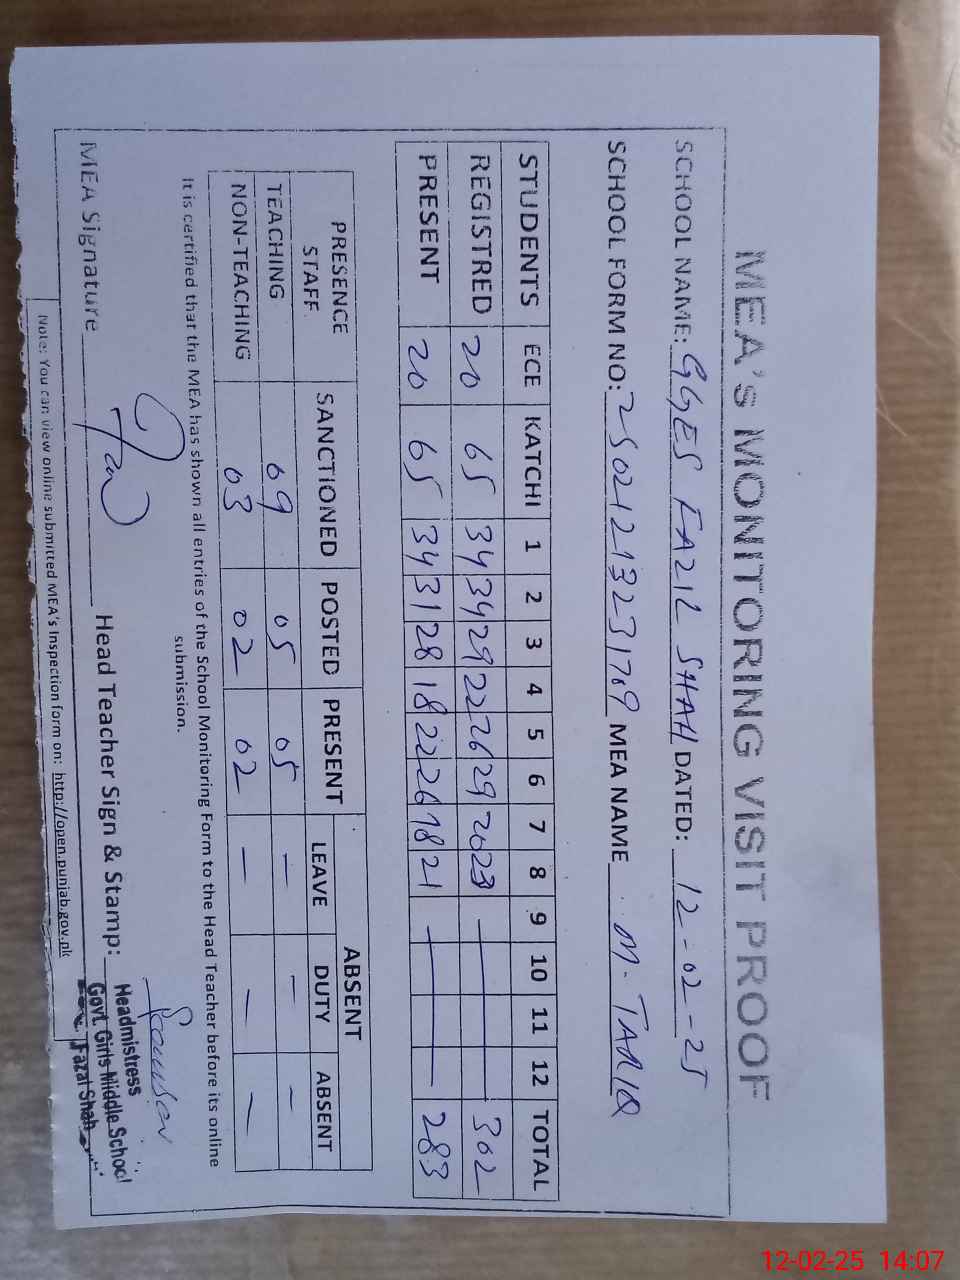 MEA's MONITORING VISIT PROOF
SCHOOL NAME: GGES FAZIL SHAH DATED: 12-02-25
SCHOOL FORM NO: MEA NAME M. TARIQ
STUDENTS ECE KATCHI 1 2 3 4 5 6 7 8 9 10 11 12 TOTAL
REGISTRED 20 65 34 34 29 22 26 29 20 23 — 302
PRESENT 20 65 34 31 28 18 22 26 18 21 — 283
PRESENCE STAFF SANCTIONED POSTED PRESENT ABSENT
LEAVE DUTY ABSENT
TEACHING 09 05 05 — — —
NON-TEACHING 03 02 02 — — —
It is certified that the MEA has shown all entries of the School Monitoring Form to the Head Teacher before its online
submission.
MEA Signature Head Teacher Sign & Stamp:
Headmistress
Govt. Girls Middle School
Fazal Shah
Note: You can view online submitted MEA's Inspection form on: http://open.punjab.gov.pk
12-02-25 14:07